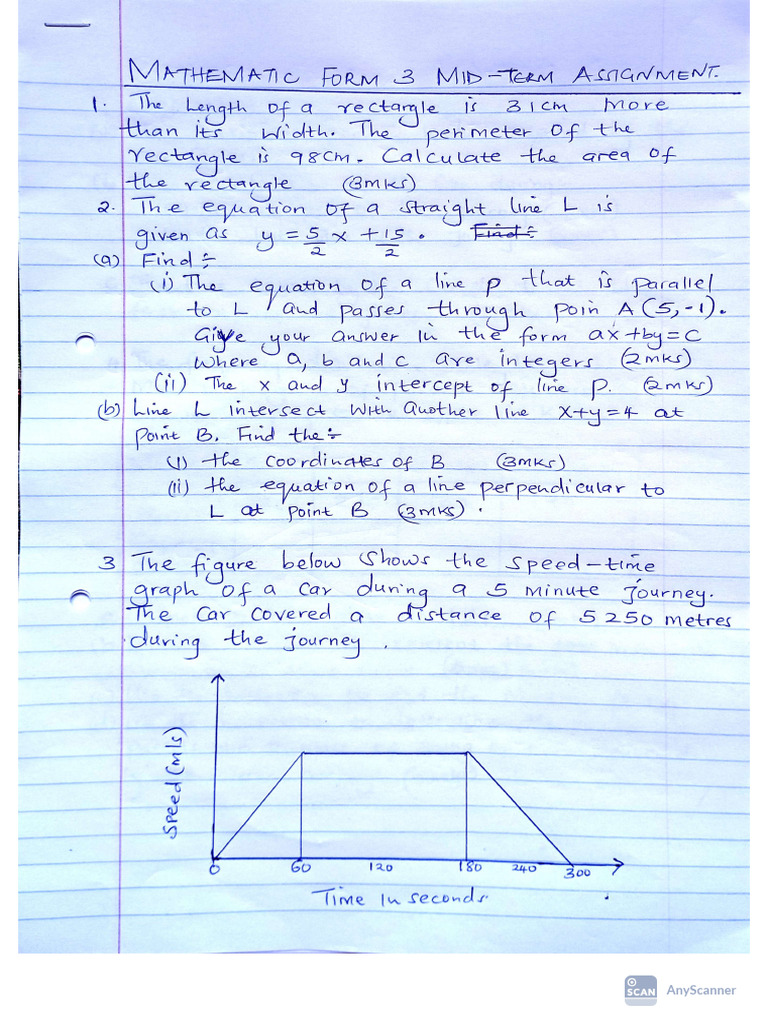 MATHEMATIC FORM 3 MID-TERM ASSIGNMENT.
1. The Length of a rectangle is 31cm more
than its width. The perimeter of the
rectangle is 98cm. Calculate the area of
the rectangle (3mks)
2. The equation of a straight line L is
given as y = 5/2 x + 15/2 . Find:-
(a) Find:-
(i) The equation of a line p that is parallel
to L and passes through poin A (5, -1).
Give your answer in the form ax+by=c
where a, b and c are integers (2mks)
(ii) The x and y intercept of line p. (2mks)
(b) Line L intersect with another line x+y=4 at
point B. Find the:-
(i) the coordinates of B (3mks)
(ii) the equation of a line perpendicular to
L at point B (3mks).
3 The figure below shows the speed-time
graph of a car during a 5 minute journey.
The car covered a distance of 5250 metres
during the journey.
Speed (m/s)
0 60 120 180 240 300
Time in seconds.
SCAN AnyScanner